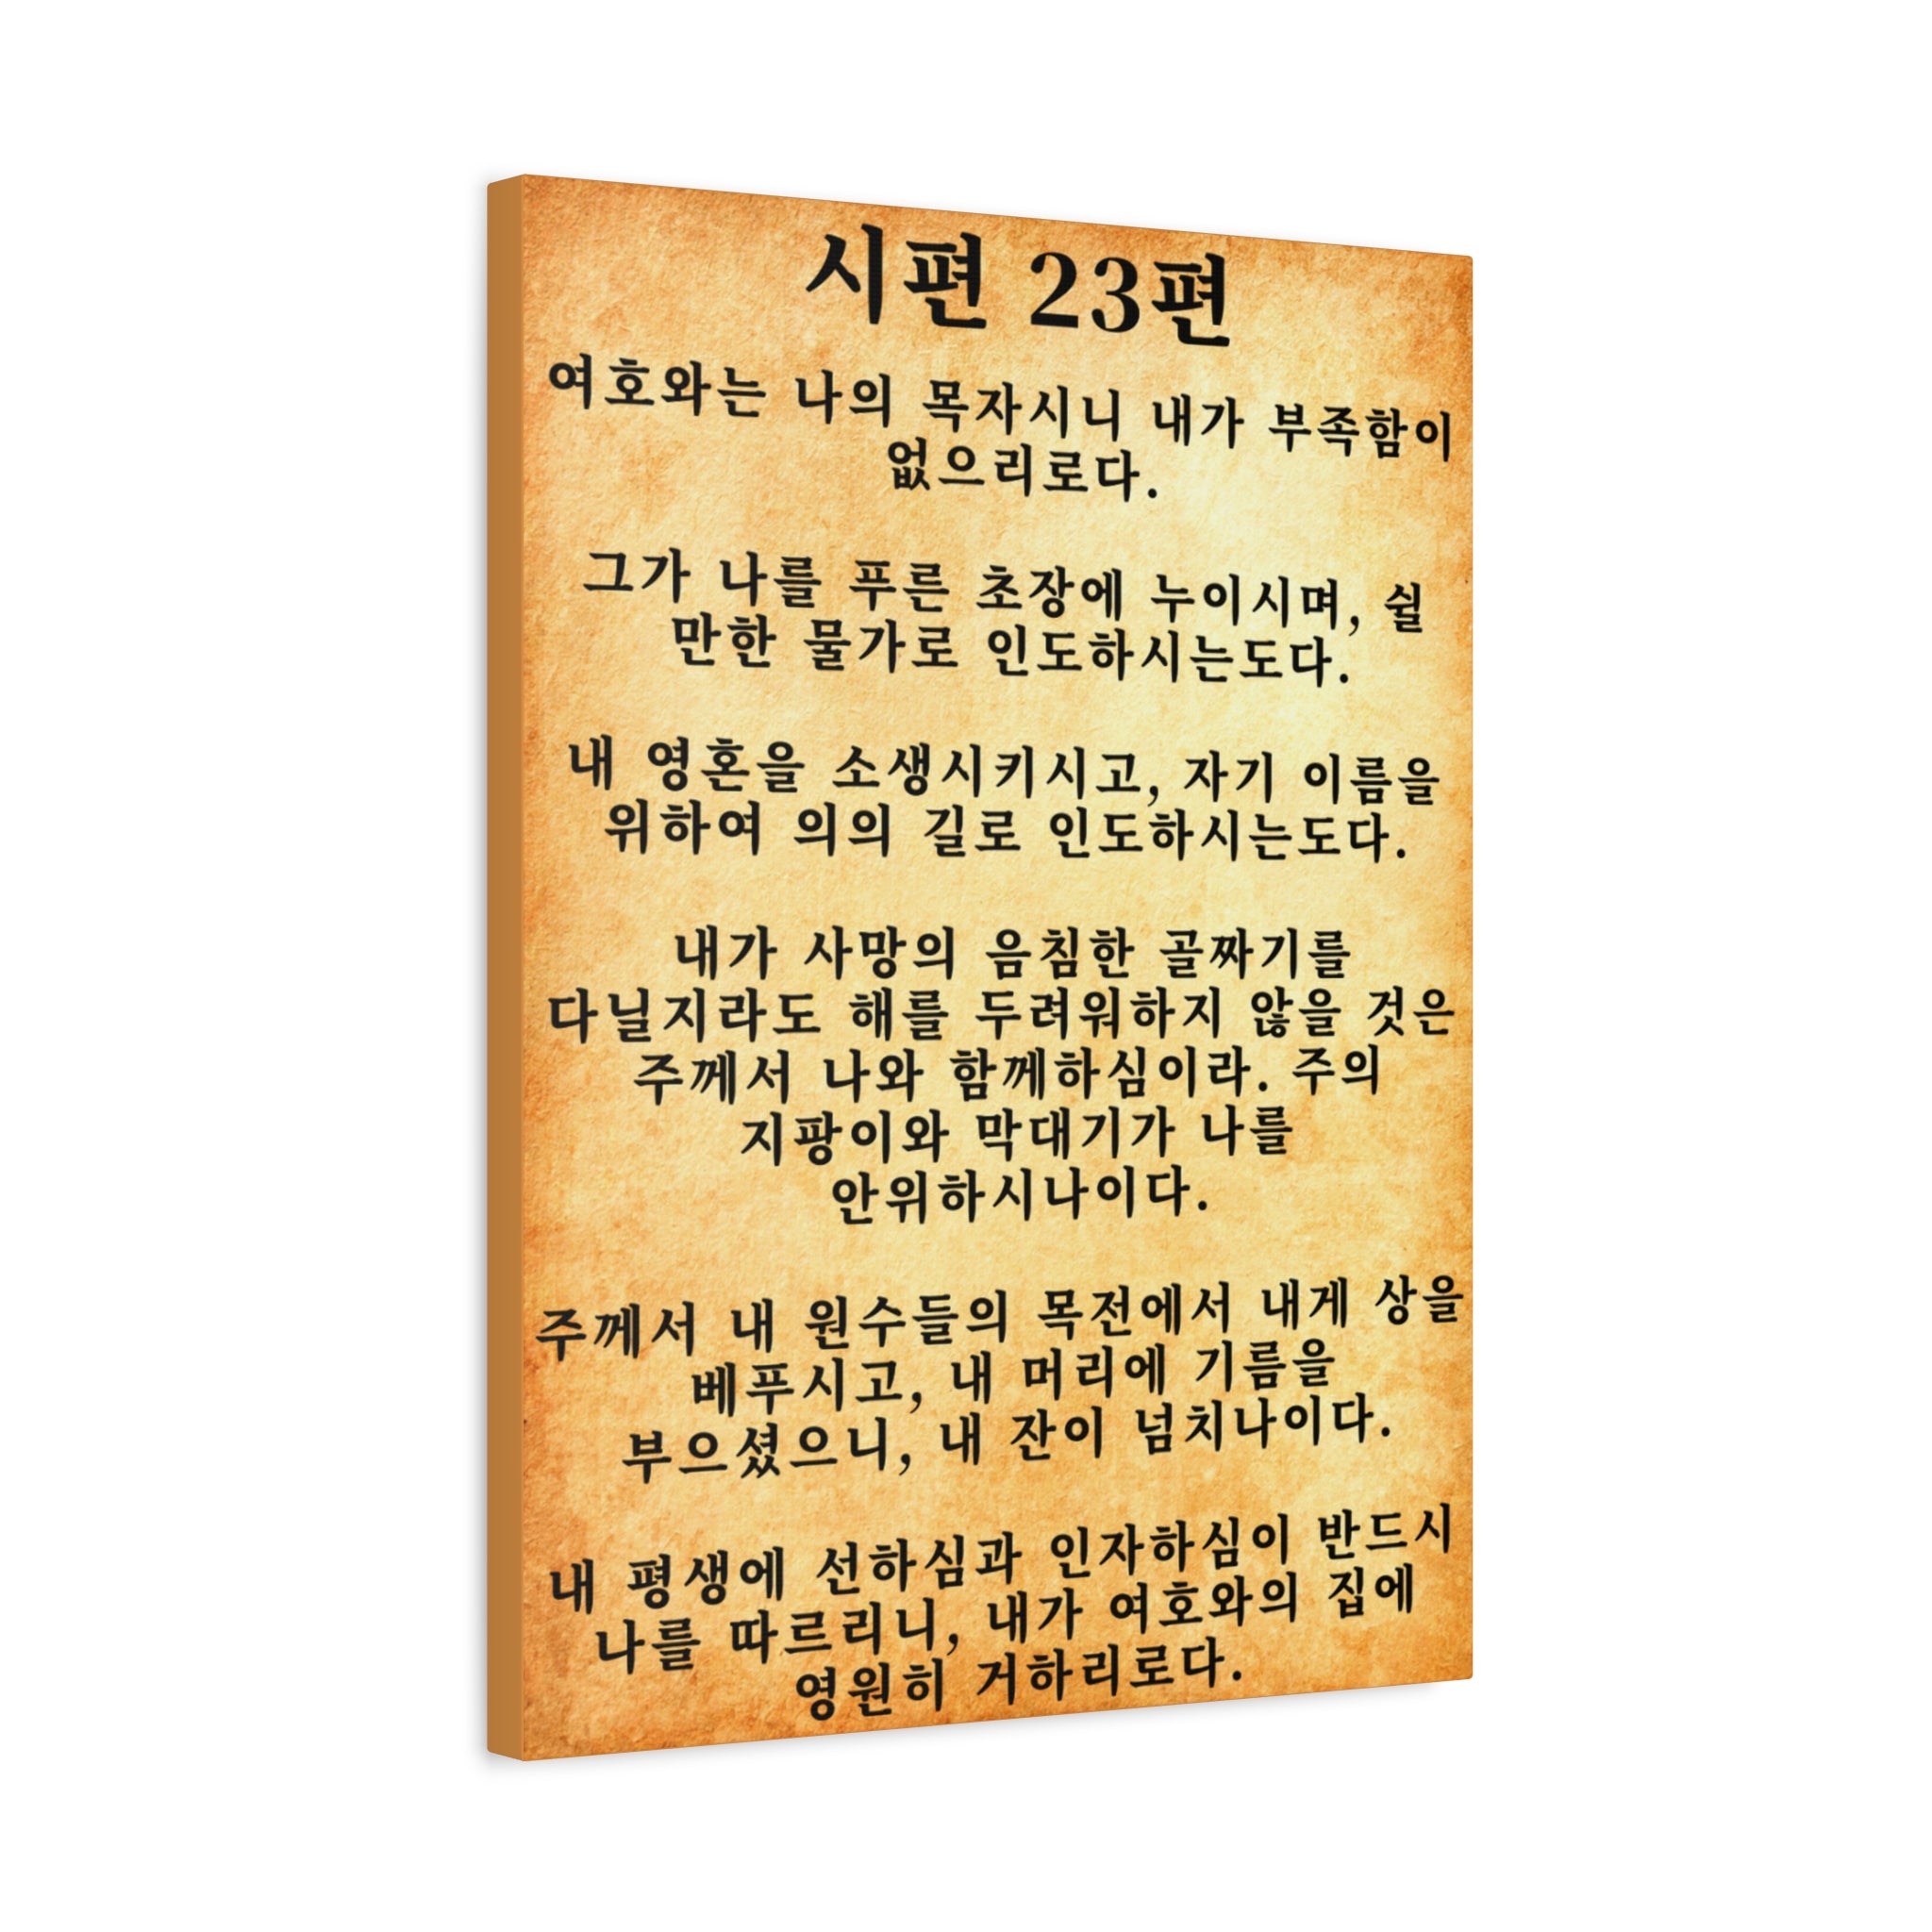 시편 23편
여호와는 나의 목자시니 내가 부족함이
없으리로다.
그가 나를 푸른 초장에 누이시며, 쉴
만한 물가로 인도하시는도다.
내 영혼을 소생시키시고, 자기 이름을
위하여 의의 길로 인도하시는도다.
내가 사망의 음침한 골짜기를
다닐지라도 해를 두려워하지 않을 것은
주께서 나와 함께하심이라. 주의
지팡이와 막대기가 나를
안위하시나이다.
주께서 내 원수들의 목전에서 내게 상을
베푸시고, 내 머리에 기름을
부으셨으니, 내 잔이 넘치나이다.
내 평생에 선하심과 인자하심이 반드시
나를 따르리니, 내가 여호와의 집에
영원히 거하리로다.